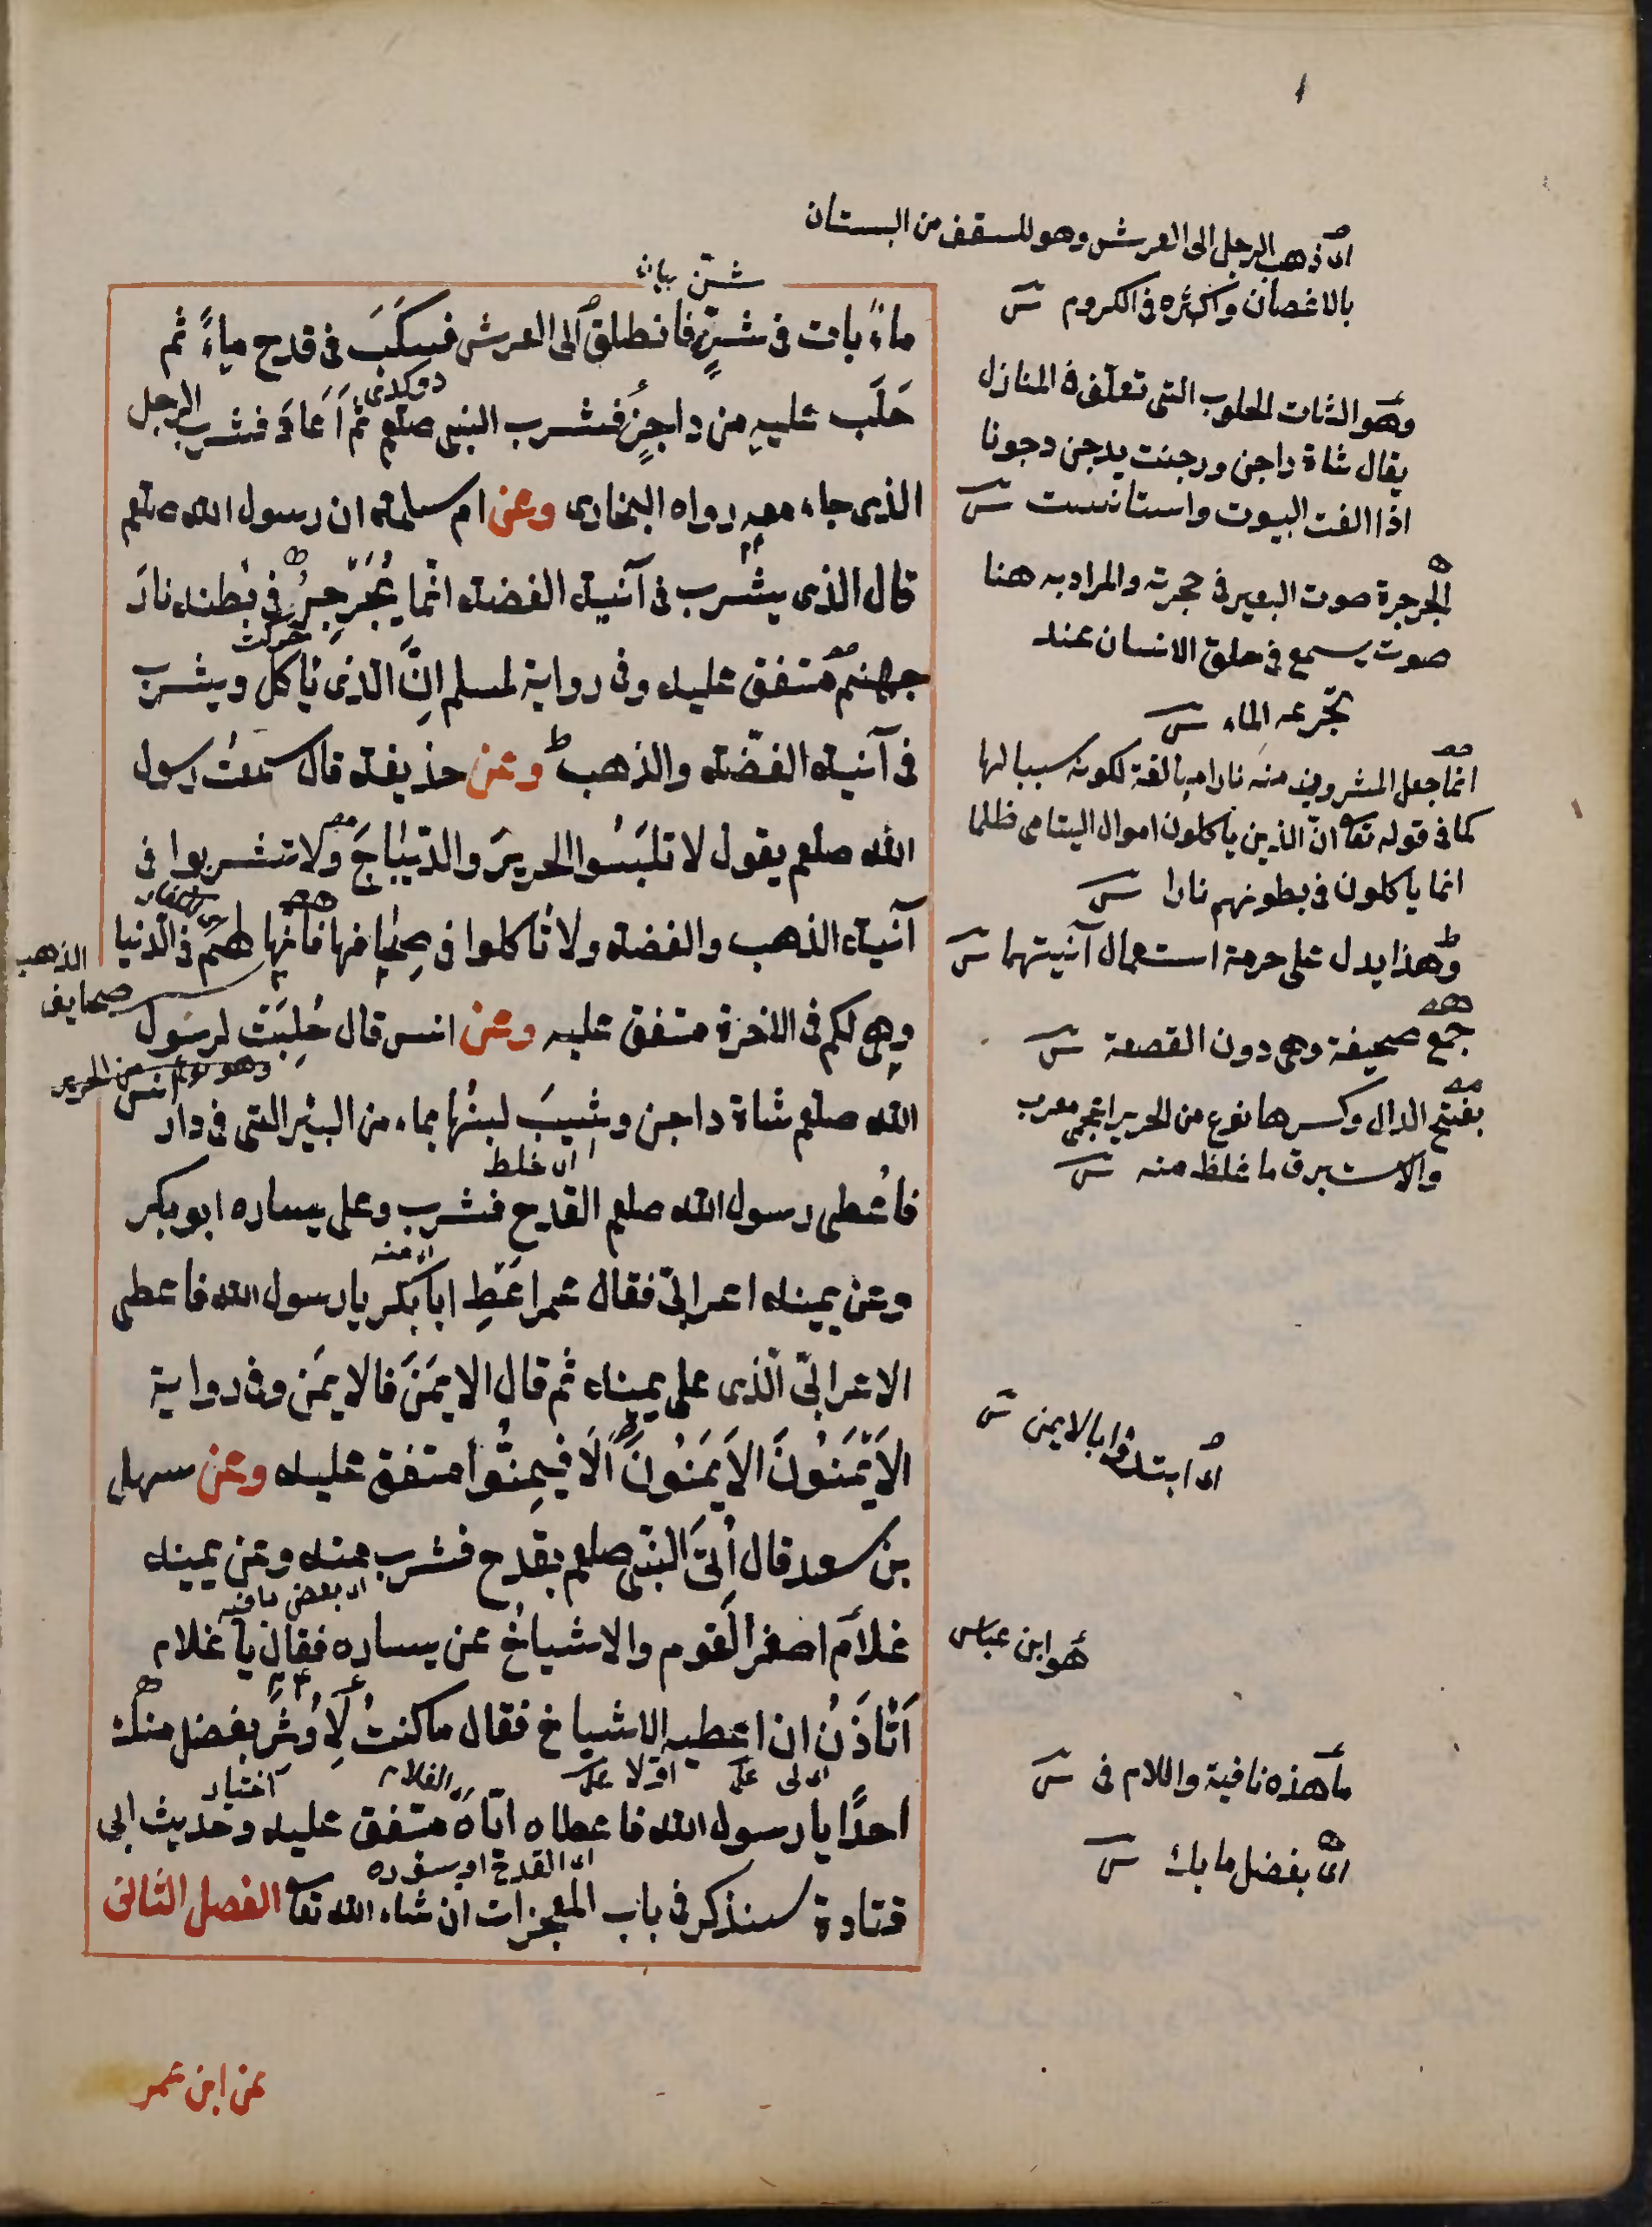 ماءً بات في شنٍّ فانطلق الى العرش فسكبَ في قدح ماءً ثم
حَلَب عليه من داجنٍ فشرب النبى صلعم ثم اَعادَ فشرب الرجل
الذى جاء معه رواه البخارى وعن ام سلمة ان رسول الله صلعم
قال الذى يشرب فى آنية الفضة انّما يُجَرْجِرُ في بطنه نارَ
جهنم متفق عليه وفى رواية لمسلم اِنَّ الذى ياكل ويشرب
فى آنية الفضّة والذهب وعن حذيفة قال سمعتُ رسول
الله صلعم يقول لا تلبَسُوا الحريرَ والدّيباجَ ولا تشربوا فى
آنية الذهب والفضة ولا تأكلوا فى صِحافها فانّها لهم فى الدنيا
وهى لكم فى الاخرة متفق عليه وعن انس قال حُلِبَتْ لرسول
الله صلعم شاة داجن وشِيبَ لبنُها بماء من البئر التى فى دار انس
فاُعطى رسول الله صلعم القدح فشرب وعلى يساره ابو بكر
وعن يمينه اعرابىّ فقال عمر اعْطِ ابا بكر يا رسول الله فاعطى
الاعرابىّ الّذى على يمينه ثم قال الايمَنَ فالايمَن وفى رواية
الاَيْمَنُونَ الاَيمَنُونَ اَلَا فيَمِنُّوا متفق عليه وعن سهل
بن سعد قال اُتِىَ النبى صلعم بقدح فشرب منه وعن يمينه
غلامٌ اصغر القوم والاشياخُ عن يساره فقال يا غلام
اَتَاْذَنُ ان اعطيه الاشياخ فقال ما كنتُ لِاُوثِرَ بفضل منك
احدًا يا رسول الله فاعطاه ايّاه متفق عليه وحديث ابى
قتادة سنذكر فى باب المعجزات ان شاء الله تعا الفصل الثانى
عن ابن عمر
اى ذهب الرجل الى العرش وهو للسقف من البستان
بالاغصان واكثره فى الكروم ش
وهو الشات الحلوب التى تعلف فى المنازل
يقال شاة داجن ودجنت يدجن دجونا
اذا الفت البيوت واستانست ش
الجرجرة صوت البعير فى حجرته والمراد به هنا
صوت يسمع فى حلق الانسان عند
تجرعه الماء ش
انما جعل المشروب منه نارا مبالغة لكونه سببا لها
كما فى قوله تعا انّ الذين ياكلون اموال اليتامى ظلما
انما ياكلون فى بطونهم نارا ش
وهذا يدل على حرمة استعمال آنيتهما ش
جمع صحيفة وهى دون القصعة ش
بفتح الدال وكسرها نوع من الحرير اعجمى معرب
والاستبرق ما غلظ منه ش
اى ابتدؤا بالايمن ش
هو ابن عباس
ما هذه نافية واللام فى ش
اى بفضل ما بك ش
صحايف
الذهب
اى خلط
اى منه
اى بعض ما فيه
اختيار
الغلام
اى القدح او سؤره